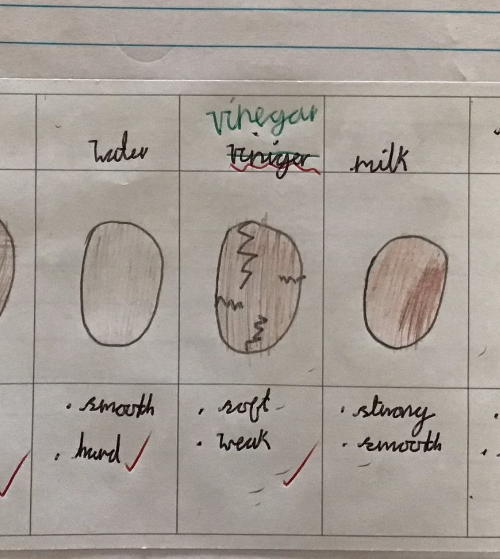 vinegar
water
viniger
milk
• smooth
• hard
• soft
• weak
• strong
• smooth